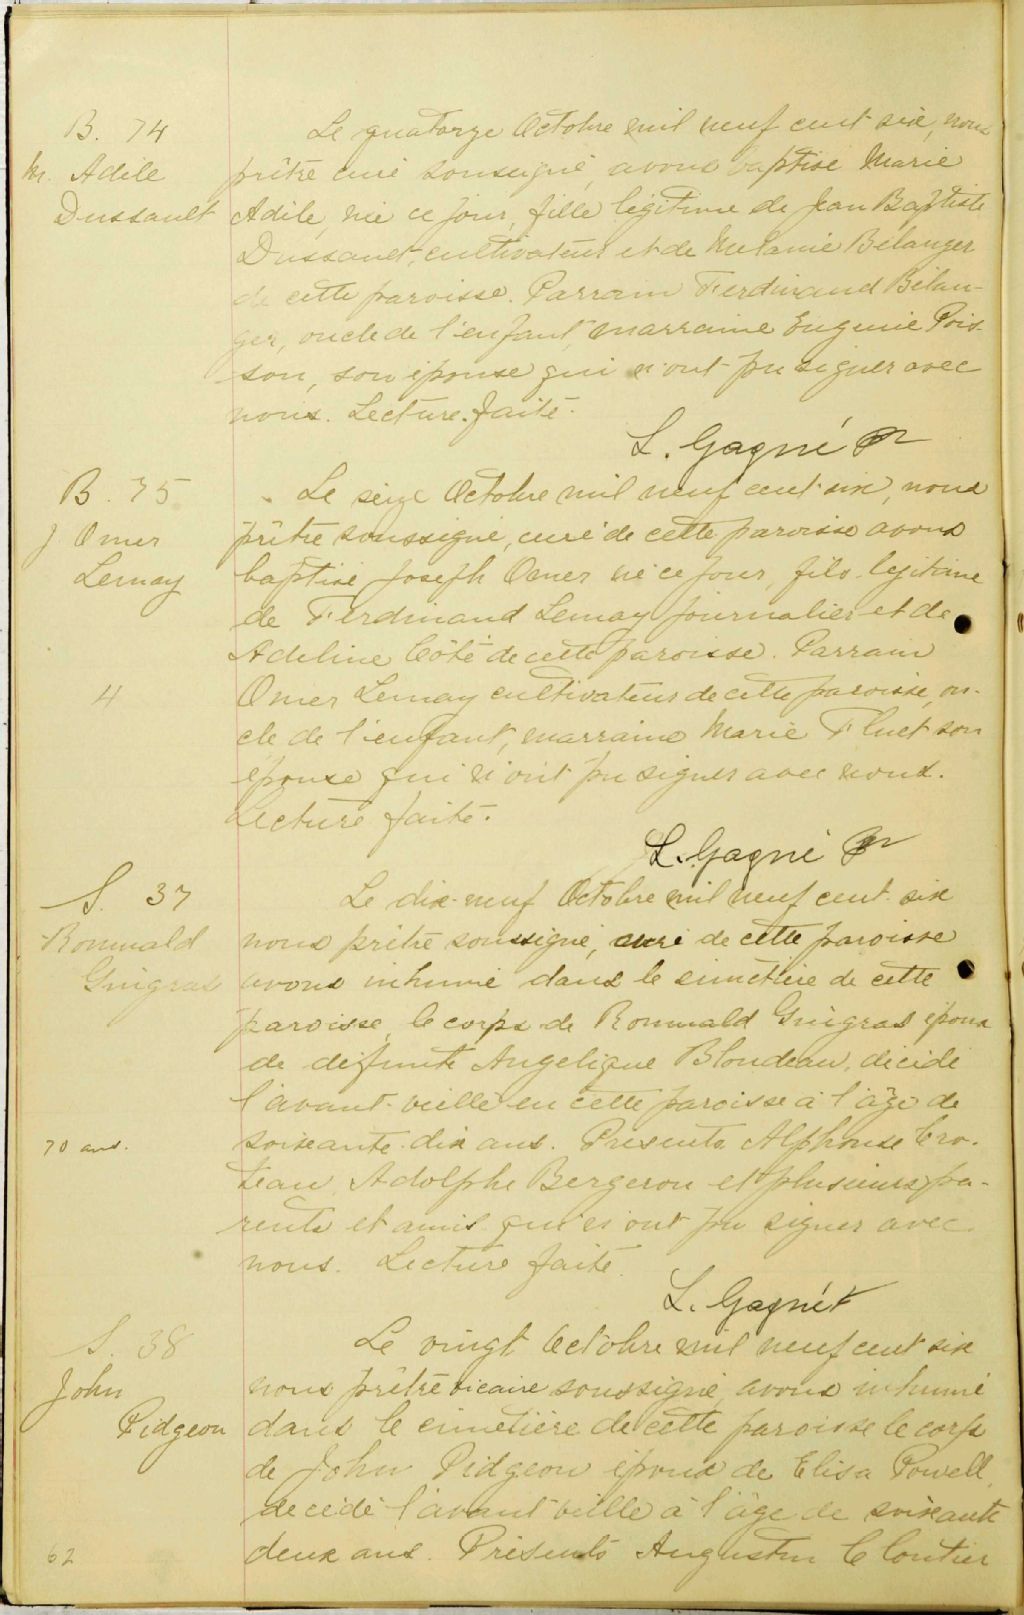 B. 74
M. Adile
Dussault
Le quatorze Octobre mil neuf cent six, nous
prêtre curé soussigné, avons baptisé Marie
Adile, née ce jour, fille légitime de Jean Baptiste
Dussault, cultivateur et de Mélanie Bélanger
de cette paroisse. Parrain Ferdinand Bélan-
ger, oncle de l'enfant, marraine Eugenie Pois-
son, son épouse qui n'ont pu signer avec
nous. Lecture faite.
L. Gagné Ptr
B. 75
J. Omer
Lemay
4
Le seize Octobre mil neuf cent six, nous
prêtre soussigné, curé de cette paroisse avons
baptisé Joseph Omer né ce jour, fils légitime
de Ferdinand Lemay journalier et de
Adeline Côté de cette paroisse. Parrain
Omer Lemay cultivateur de cette paroisse, on-
cle de l'enfant, marraine Marie Fluet son
épouse qui n'ont pu signer avec nous.
Lecture faite.
L. Gagné Ptr
S. 37
Romuald
Gingras
70 ans.
Le dix-neuf Octobre mil neuf cent six
nous prêtre soussigné, curé de cette paroisse
avons inhumé dans le cimetière de cette
paroisse, le corps de Romuald Gingras époux
de défunte Angelique Blondeau, décédé
l'avant-veille en cette paroisse à l'âge de
soixante-dix ans. Présents Alphonse Cro-
teau, Adolphe Bergeron et plusieurs pa-
rents et amis qui n'ont pu signer avec
nous. Lecture faite.
L. Gagné
S. 38
John
Pidgeon
62
Le vingt Octobre mil neuf cent six
nous prêtre vicaire soussigné, avons inhumé
dans le cimetière de cette paroisse le corps
de John Pidgeon époux de Elisa Powell,
décédé l'avant veille à l'âge de soixante
deux ans. Présents Augustin Cloutier